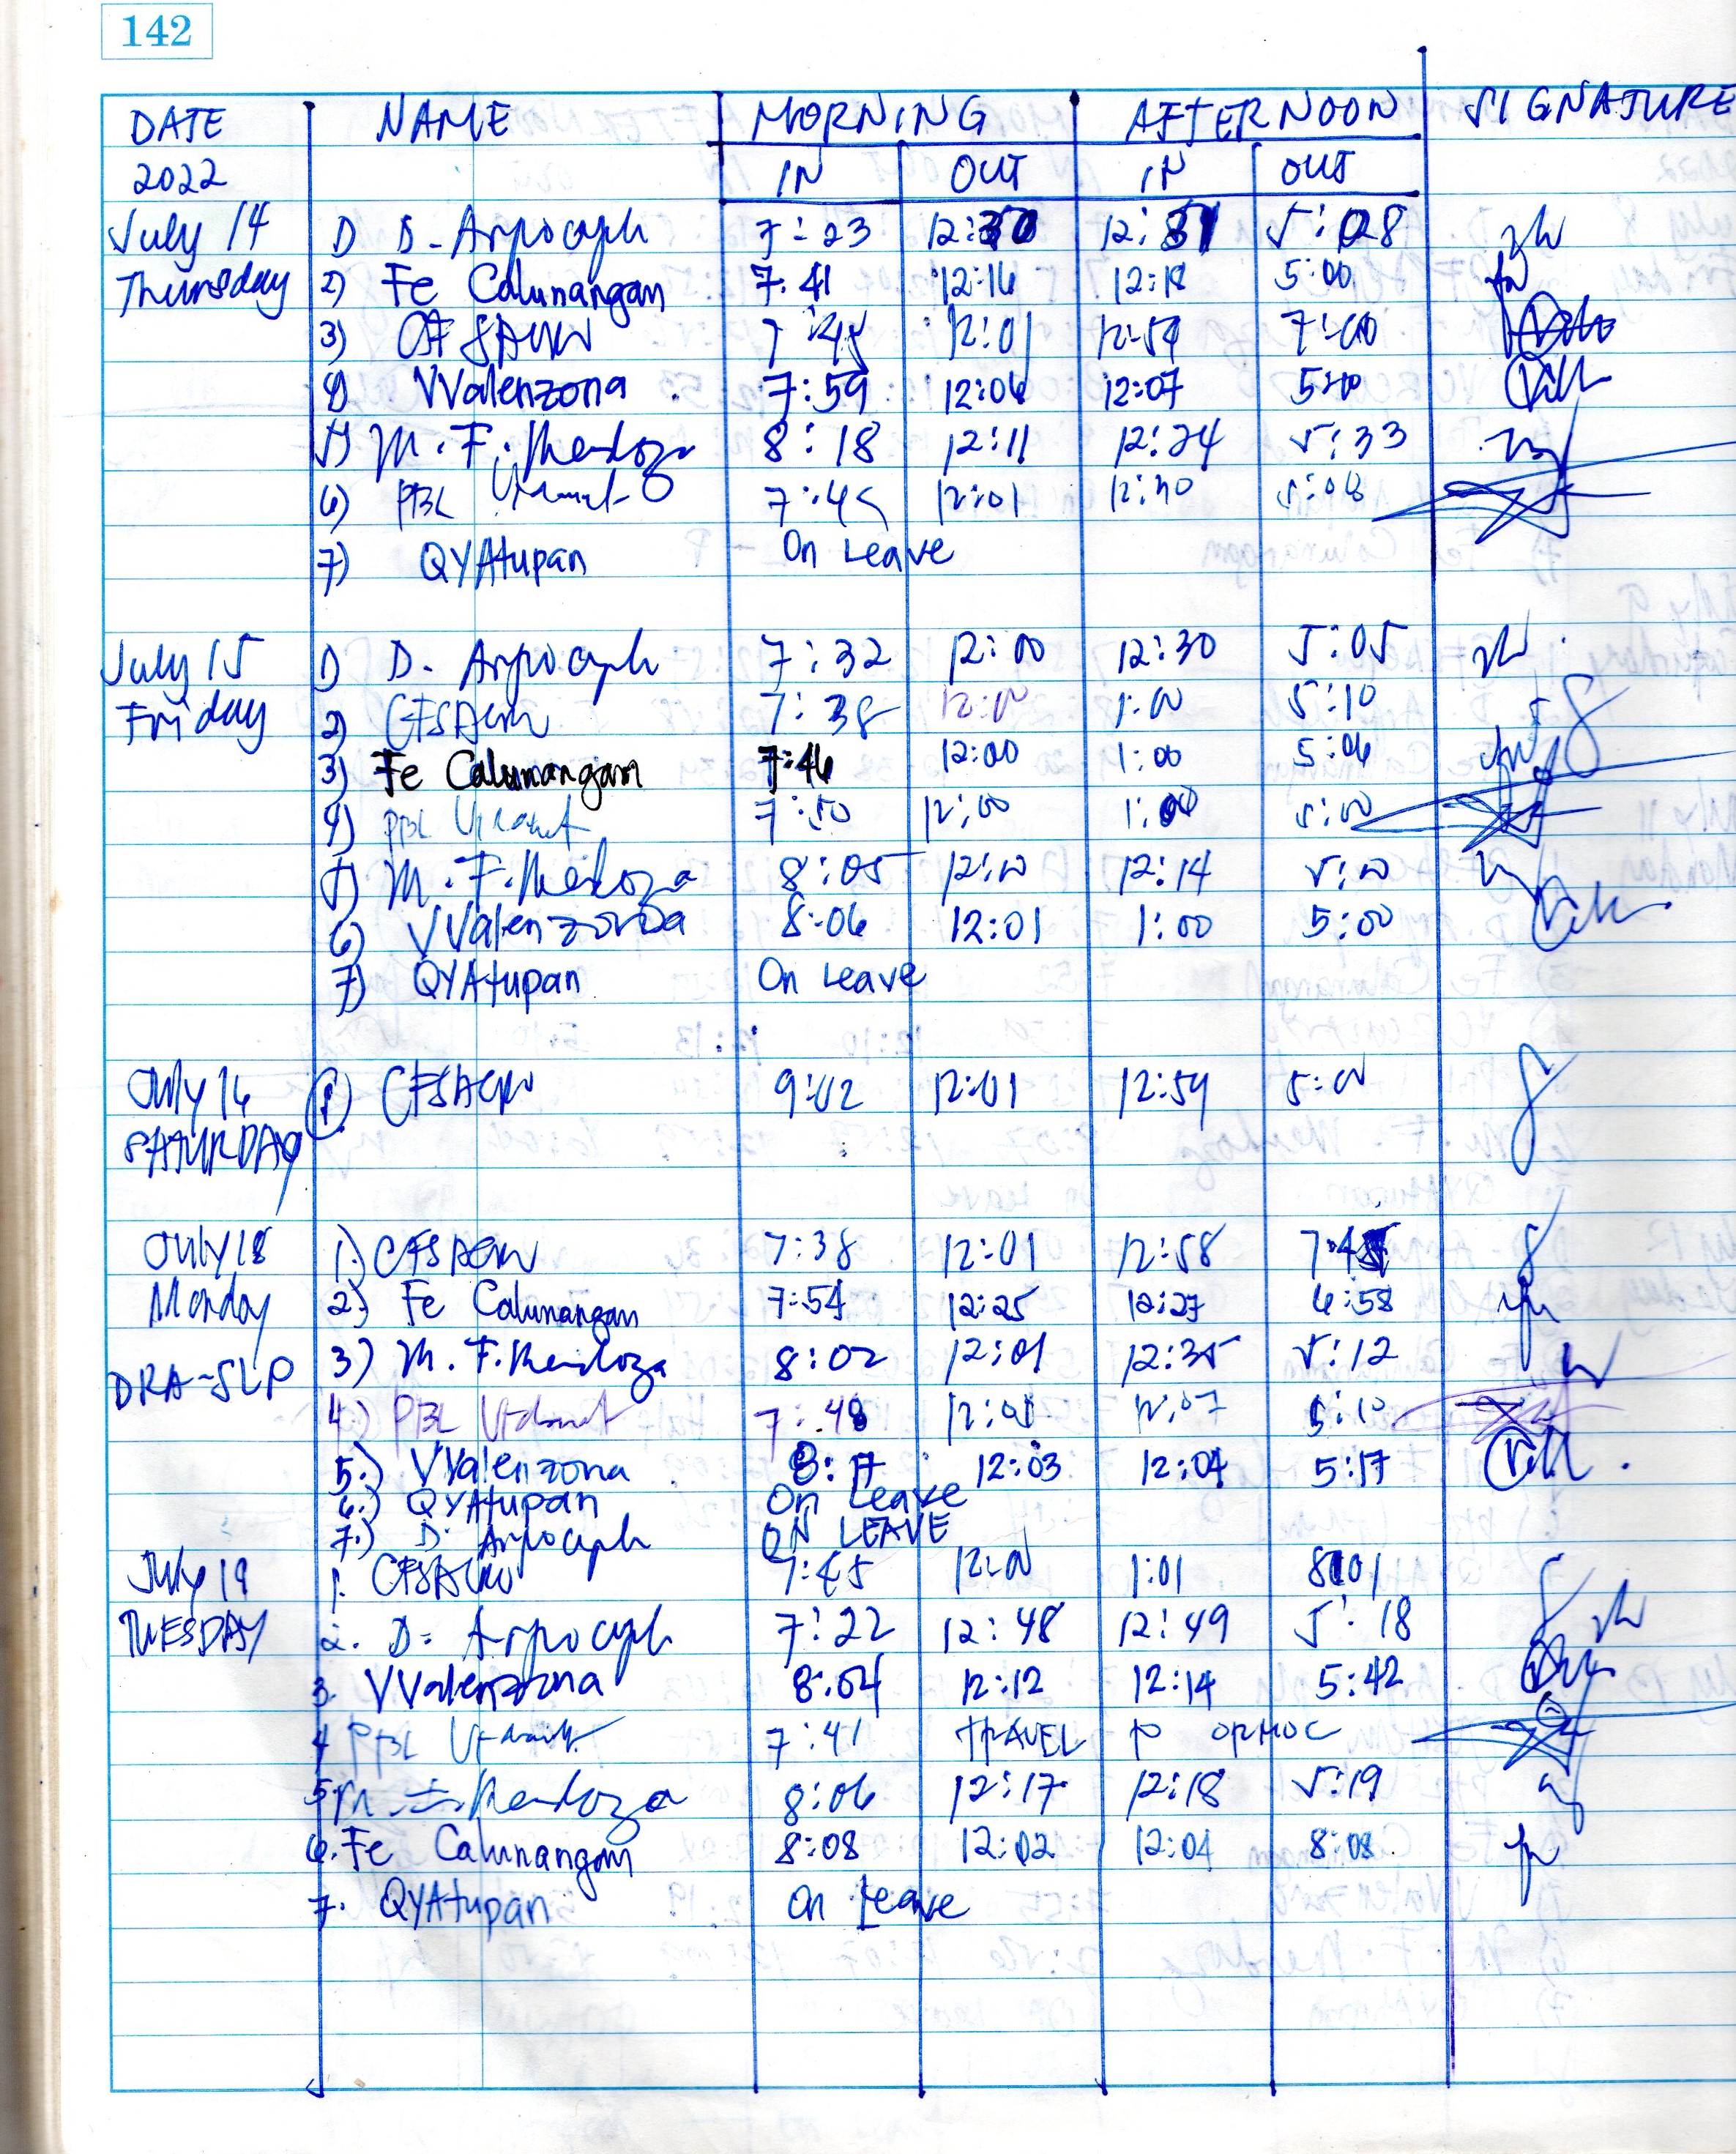 142
DATE NAME MORNING AFTERNOON SIGNATURE
2022 IN OUT IN OUT
July 14 1) D. Arpoceple 7:23 12:30 12:31 5:08
Thursday 2) Fe Calunangan 7:41 12:16 12:18 5:00
3) 7:45 12:01 12:59 7:00
4) VValenzona 7:59 12:06 12:07 5:00
5) M. F. Mendoza 8:18 12:11 12:24 5:33
6) PBL 7:45 12:01 12:40 5:08
7) QYAtupan On Leave
July 15 1) D. 7:32 12:00 12:30 5:05
Friday 2) 7:38 12:00 1:00 5:10
3) Fe Calunangan 7:46 12:00 1:00 5:06
4) PBL 7:50 12:00 1:00 5:00
5) M. F. Mendoza 8:05 12:10 12:14 5:10
6) VValenzona 8:06 12:01 1:00 5:00
7) QYAtupan On Leave
July 16 1) 9:02 12:01 12:59 5:00
SATURDAY
July 18 1.) 7:38 12:01 12:58 7:45
Monday 2.) Fe Calunangan 7:54 12:25 12:27 6:58
DRA-SLP 3) M. F. Mendoza 8:02 12:01 12:35 5:12
4.) PBL 7:48 12:01 12:07 5:10
5.) VValenzona 8:17 12:03 12:04 5:17
6.) QYAtupan On Leave
7.) D. ON LEAVE
JULY 19 1. 7:45 12:00 1:01 8:01
TUESDAY 2. D. 7:22 12:48 12:49 5:18
3. VValenzona 8:04 12:12 12:14 5:42
4 PBL 7:41 TRAVEL to ORMOC
5. Mendoza 8:06 12:17 12:18 5:19
6. Fe Calunangan 8:08 12:02 12:04 8:08
7. QYAtupan On Leave